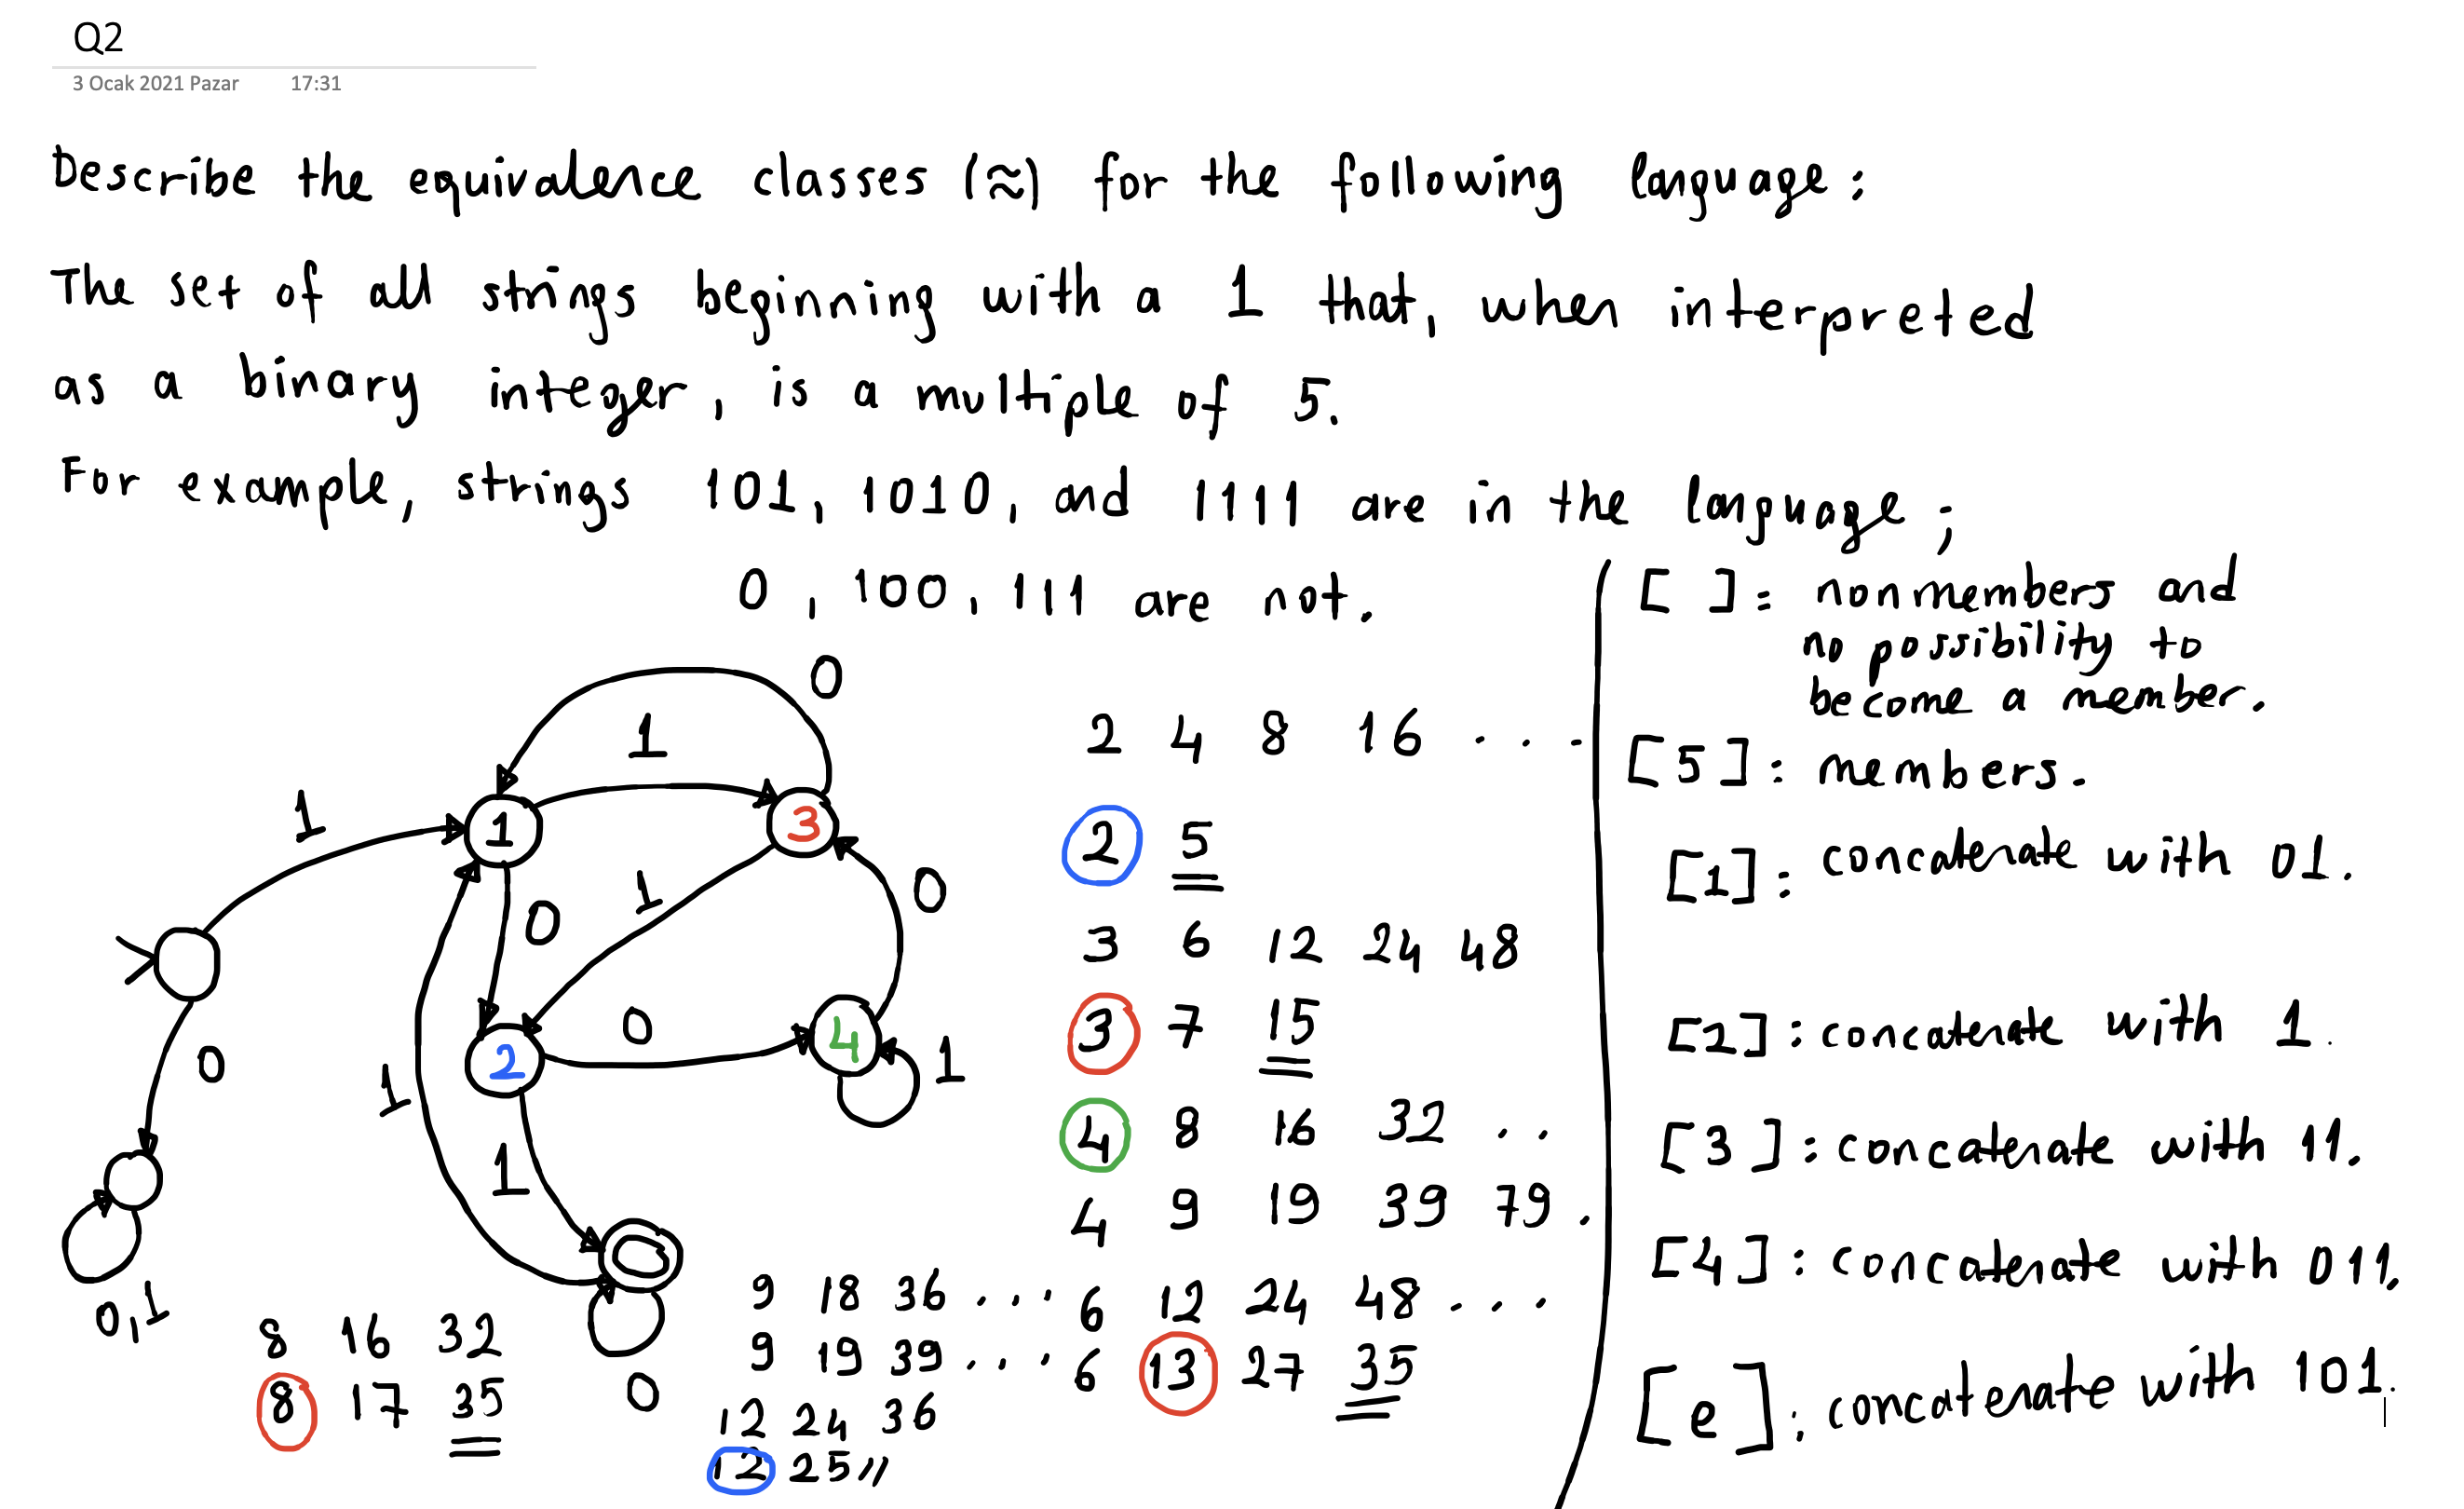 Q2
3 Ocak 2021 Pazar 17:31
Describe the equivalence classes (≈) for the following language:
The set of all strings beginning with a 1 that, when interpreted
as a binary integer, is a multiple of 5.
For example, strings 101, 1010, and 1111 are in the language;
0, 100, 111 are not.
0
1
1
1
3
0
1
0
2
0
4
1
0
1
1
0,1
0
2 4 8 16 ...
2 5
3 6 12 24 48
3 7 15
4 8 16 32 ..
4 9 19 39 79.
6 12 24 48 ...
6 13 27 35
9 18 36 ...
9 19 39 ...
12 24 36
12 25 //
8 16 32
8 17 35
[ ]: nonmembers and
no possibility to
become a member.
[5]: members.
[1]: concatenate with 01.
[2]: concatenate with 1.
[3]: concatenate with 11.
[4]: concatenate with 011.
[e]: concatenate with 101.